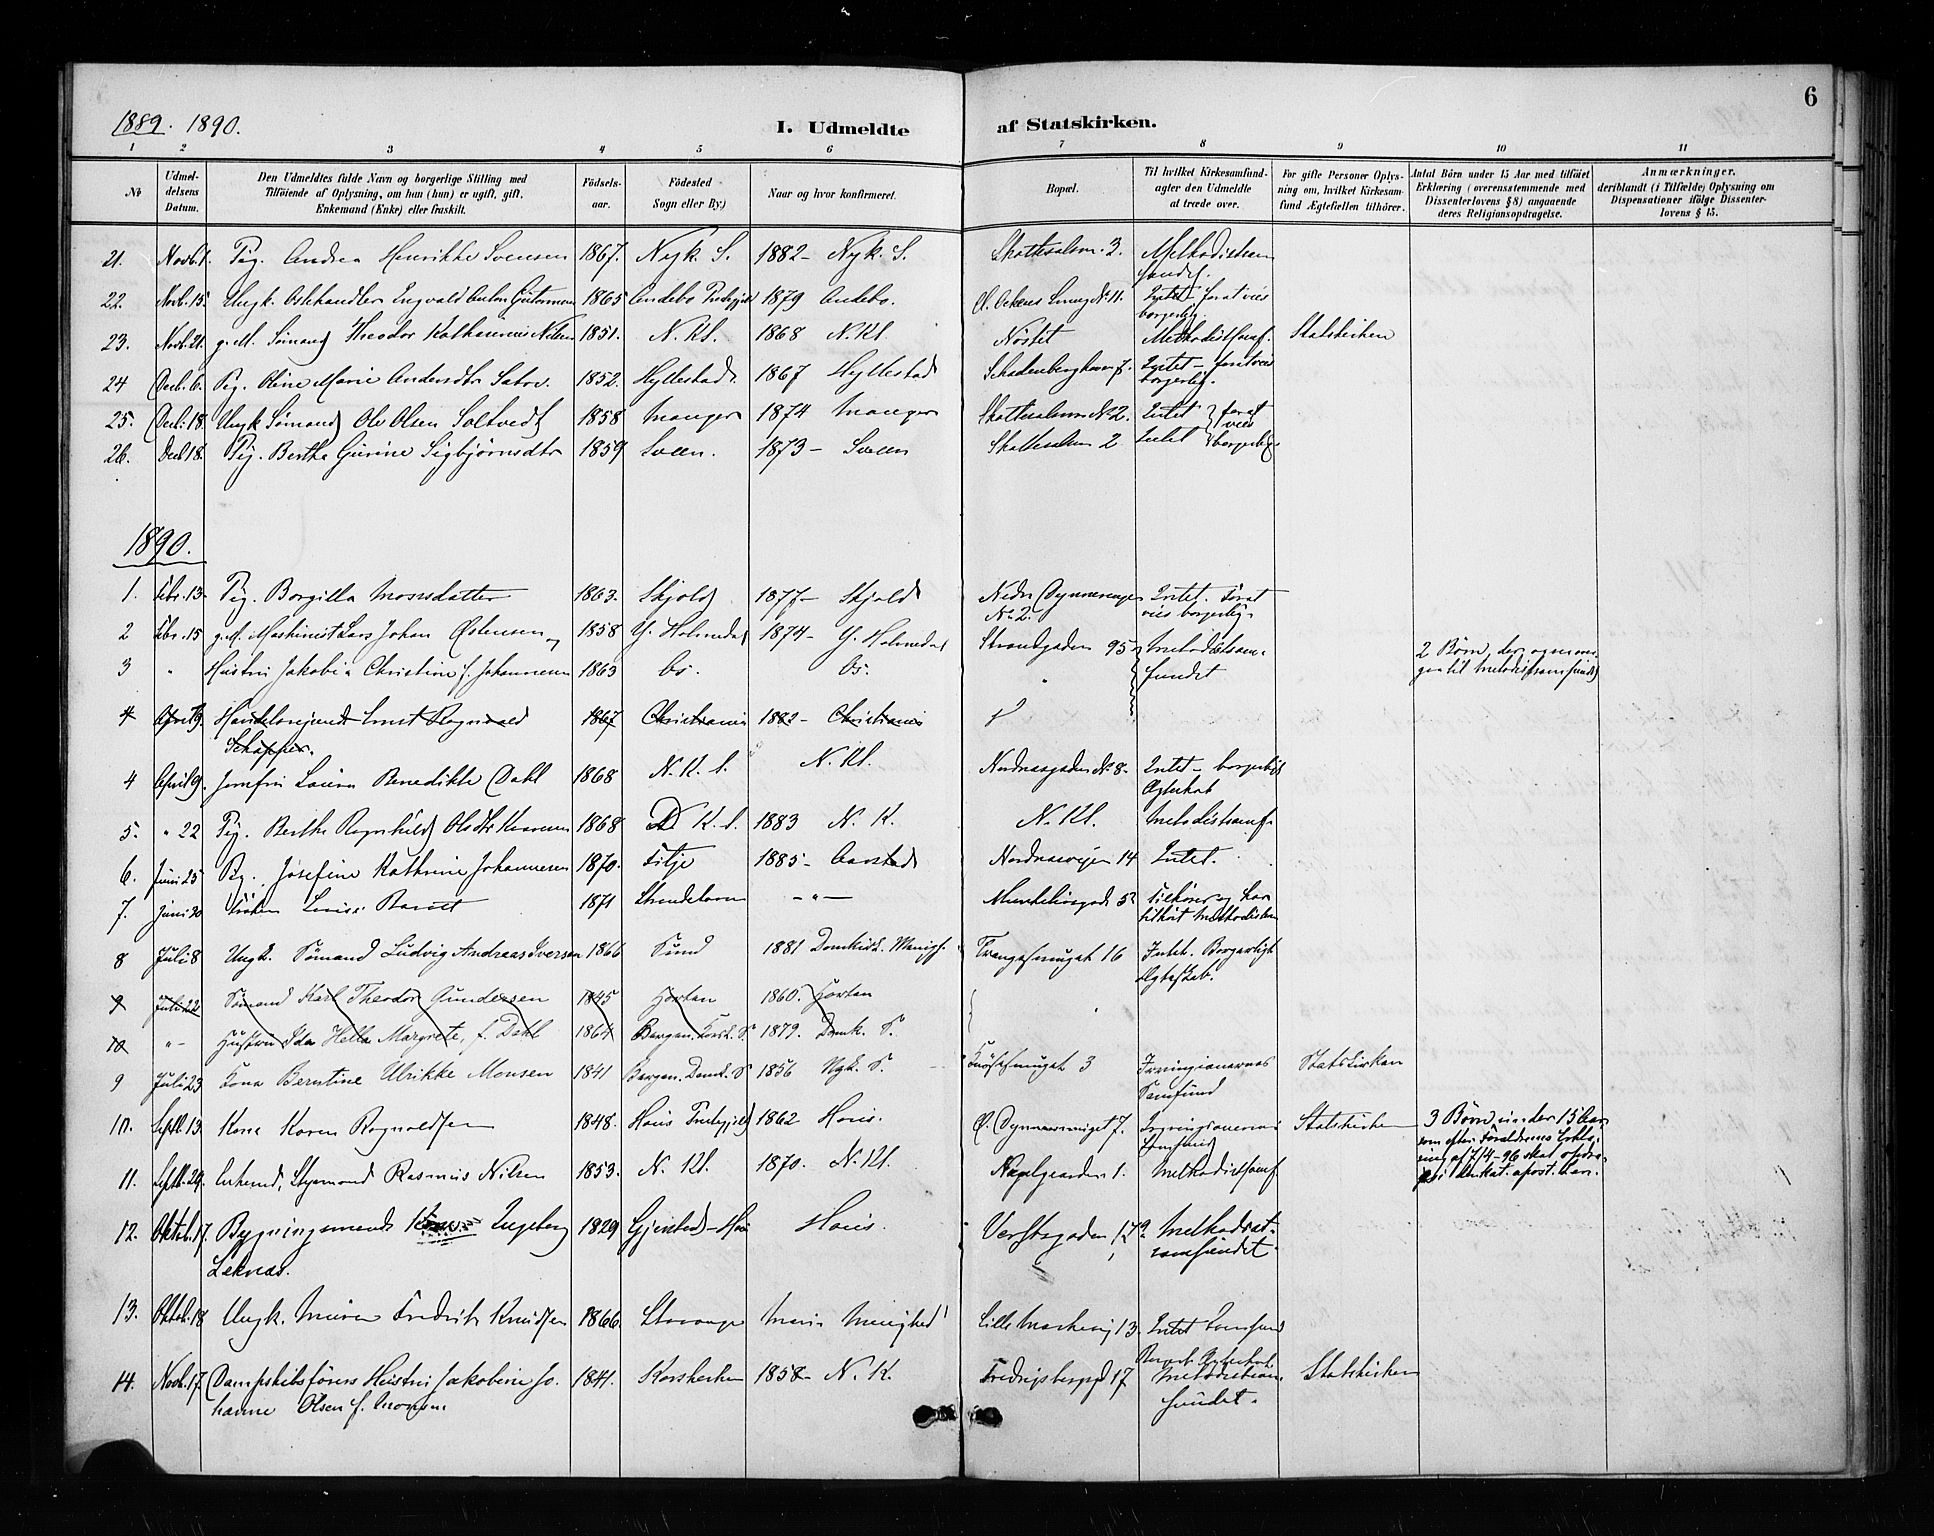 6
1889. 1890.
I. Udmeldte af Statskirken.
1 2 3 4 5 6 7 8 9 10 11
No
Udmel-
delsens
Datum.
Den Udmeldtes fulde Navn og borgerlige Stilling med
Tilföiende af Oplysning, om han (hun) er ugift, gift,
Enkemand (Enke) eller fraskilt.
Födsels-
aar.
Födested
Sogn eller By.)
Naar og hvor konfirmeret.
Bopæl.
Til hvilket Kirkesamfund-
agter den Udmeldte
at træde over.
For gifte Personer Oplys-
ning om, hvilket Kirkesam-
fund Ægtefællen tilhörer.
Antal Börn under 15 Aar med tilföiet
Erklæring (overensstemmende med
Dissenterlovens § 8) angaaende
deres Religionsopdragelse.
Anmærkninger,
deriblandt (i Tilfælde) Oplysning om
Dispensationer ifölge Dissenter-
lovens § 15.
21. Novb. 1. Pig. Andrea Henrikke Svensen 1867. Nyk. S. 1882 - Nyk. S. 3. Methodistsam
fundet.
22. Novb. 15. Ungk. Ingvald Anton Guttormsen 1865 Andebo Præstegjeld 1879 Andebo. No 11. Intet - for at vies
borgerlig.
23. Novb. 21. g. M. Sömand Theodor Kathanius Nilsen 1851. N. Kl. 1868 N. Kl. Nöstet Methodistsamf. Statskirken
24 Decb. 6. Pig. Oline Marie Andersdtr 1852. Hyllestad. 1867 Hyllestad Intet - for at vies
borgerlig.
25. Decb. 18. Ungk Sömand Ole Olsen Soltvedt 1858 Manger 1874 Manger No 2. Intet for at
vies
26. Decb 18. Pig. Berthe Gurine Sigbjörnsdtr 1859 Sveen. 1873 - Sveen 2 Intet borgerlig.
1890.
1. Febr. 13. Pig. Borgilla Monsdatter 1863. Skjold 1877 - Skjold Nedre
No 2. Intet. For at
vies borgerlig.
2 Febr. 15 g. M. Maskinist Lars Johan Östensen og 1858 Y. Holmedal 1874 - Y. Holmedal Strandgaden 95 Metodistsam-
fundet 2 Börn, der ogsaa
gaa til Metodistsamfundet
3 " Hustru Jakobia Christine f. Johannesen 1863 Os. Os. "
4 April 9. Ernst Rognvald
Schapper. 1867 Christiania 1882 - Christiania
4 April 9. Jomfru Laura Benedikte Dahl 1868 N. K. N. Kl. Nordnæsgaden No 8. Intet - borgerligt
Ægteskab
5. " 22 Pig. Berthe Ragnhild Olsdtr 1868 K. 1883 N. K. N. Kl. Metodistsamf.
6. Juni 25 Pig. Josefine Kathrine Johannesen 1870. Fitje 1885 - Aarstad Nordnæsveien 14 Intet.
7. Juni 30 Fröken 1871 - " - tilhört Methodisten
8 Juli 8 Ungk. Sömand Ludvig Andreas Iversen 1866 Sund 1881 Domkirk. Menigh. Trangesmuget 16 Intet. Borgerligt
Ægteskab.
9 Juli 22 Sömand Karl Theodor Gundersen 1845 Horten 1860. Horten
10 " - Hustru Ida Helle Margrete, f. Dahl 1864 Bergen. Korsk. S. 1879. Domk. S.
9 Juli 23 Kona Berntine Ulrikke Monsen 1841 Bergen. Domk. S 1856 Nyk. S. Knösesmuget 3 Irvingianernes
Samfund Statskirken
10. Septb. 13 Kone Karen Rognaldsen 1848. Hous Præstegjeld 1862 Hous. 7. Irvingianernes
Samfund Statskirken 3 Börn under 15 Aar
som efter Forældrenes Erklæ-
ring af 7/4-96 skal opdra-
ges i den kat. apost. Kon.
11. Septb. 29. Enkemd, Styrmand Rasmus Nilsen 1853. N. Kl. 1870. N. Kl. 1. Methodistsamf
12. Oktob. 17. Bygningsmands Kone Ingeborg
Leknæs. 1829 Hous. Verftsgaden Methodist-
samfundet.
13. Oktob. 18 Ungk. Murer Fredrik Knudsen 1866. Stavanger Marie Menighed Lille Markevei 13. Intet Samfund
Borgerl. Ægteskab.
14. Novb. 17. Dampskibsförers Hustru Jakobine Jo-
hanne Olsen f. Monsen. 1841. Korskirken 1858 - N. K. Fredrigsbergsgd 17 Metodistsam-
fundet. Statskirken